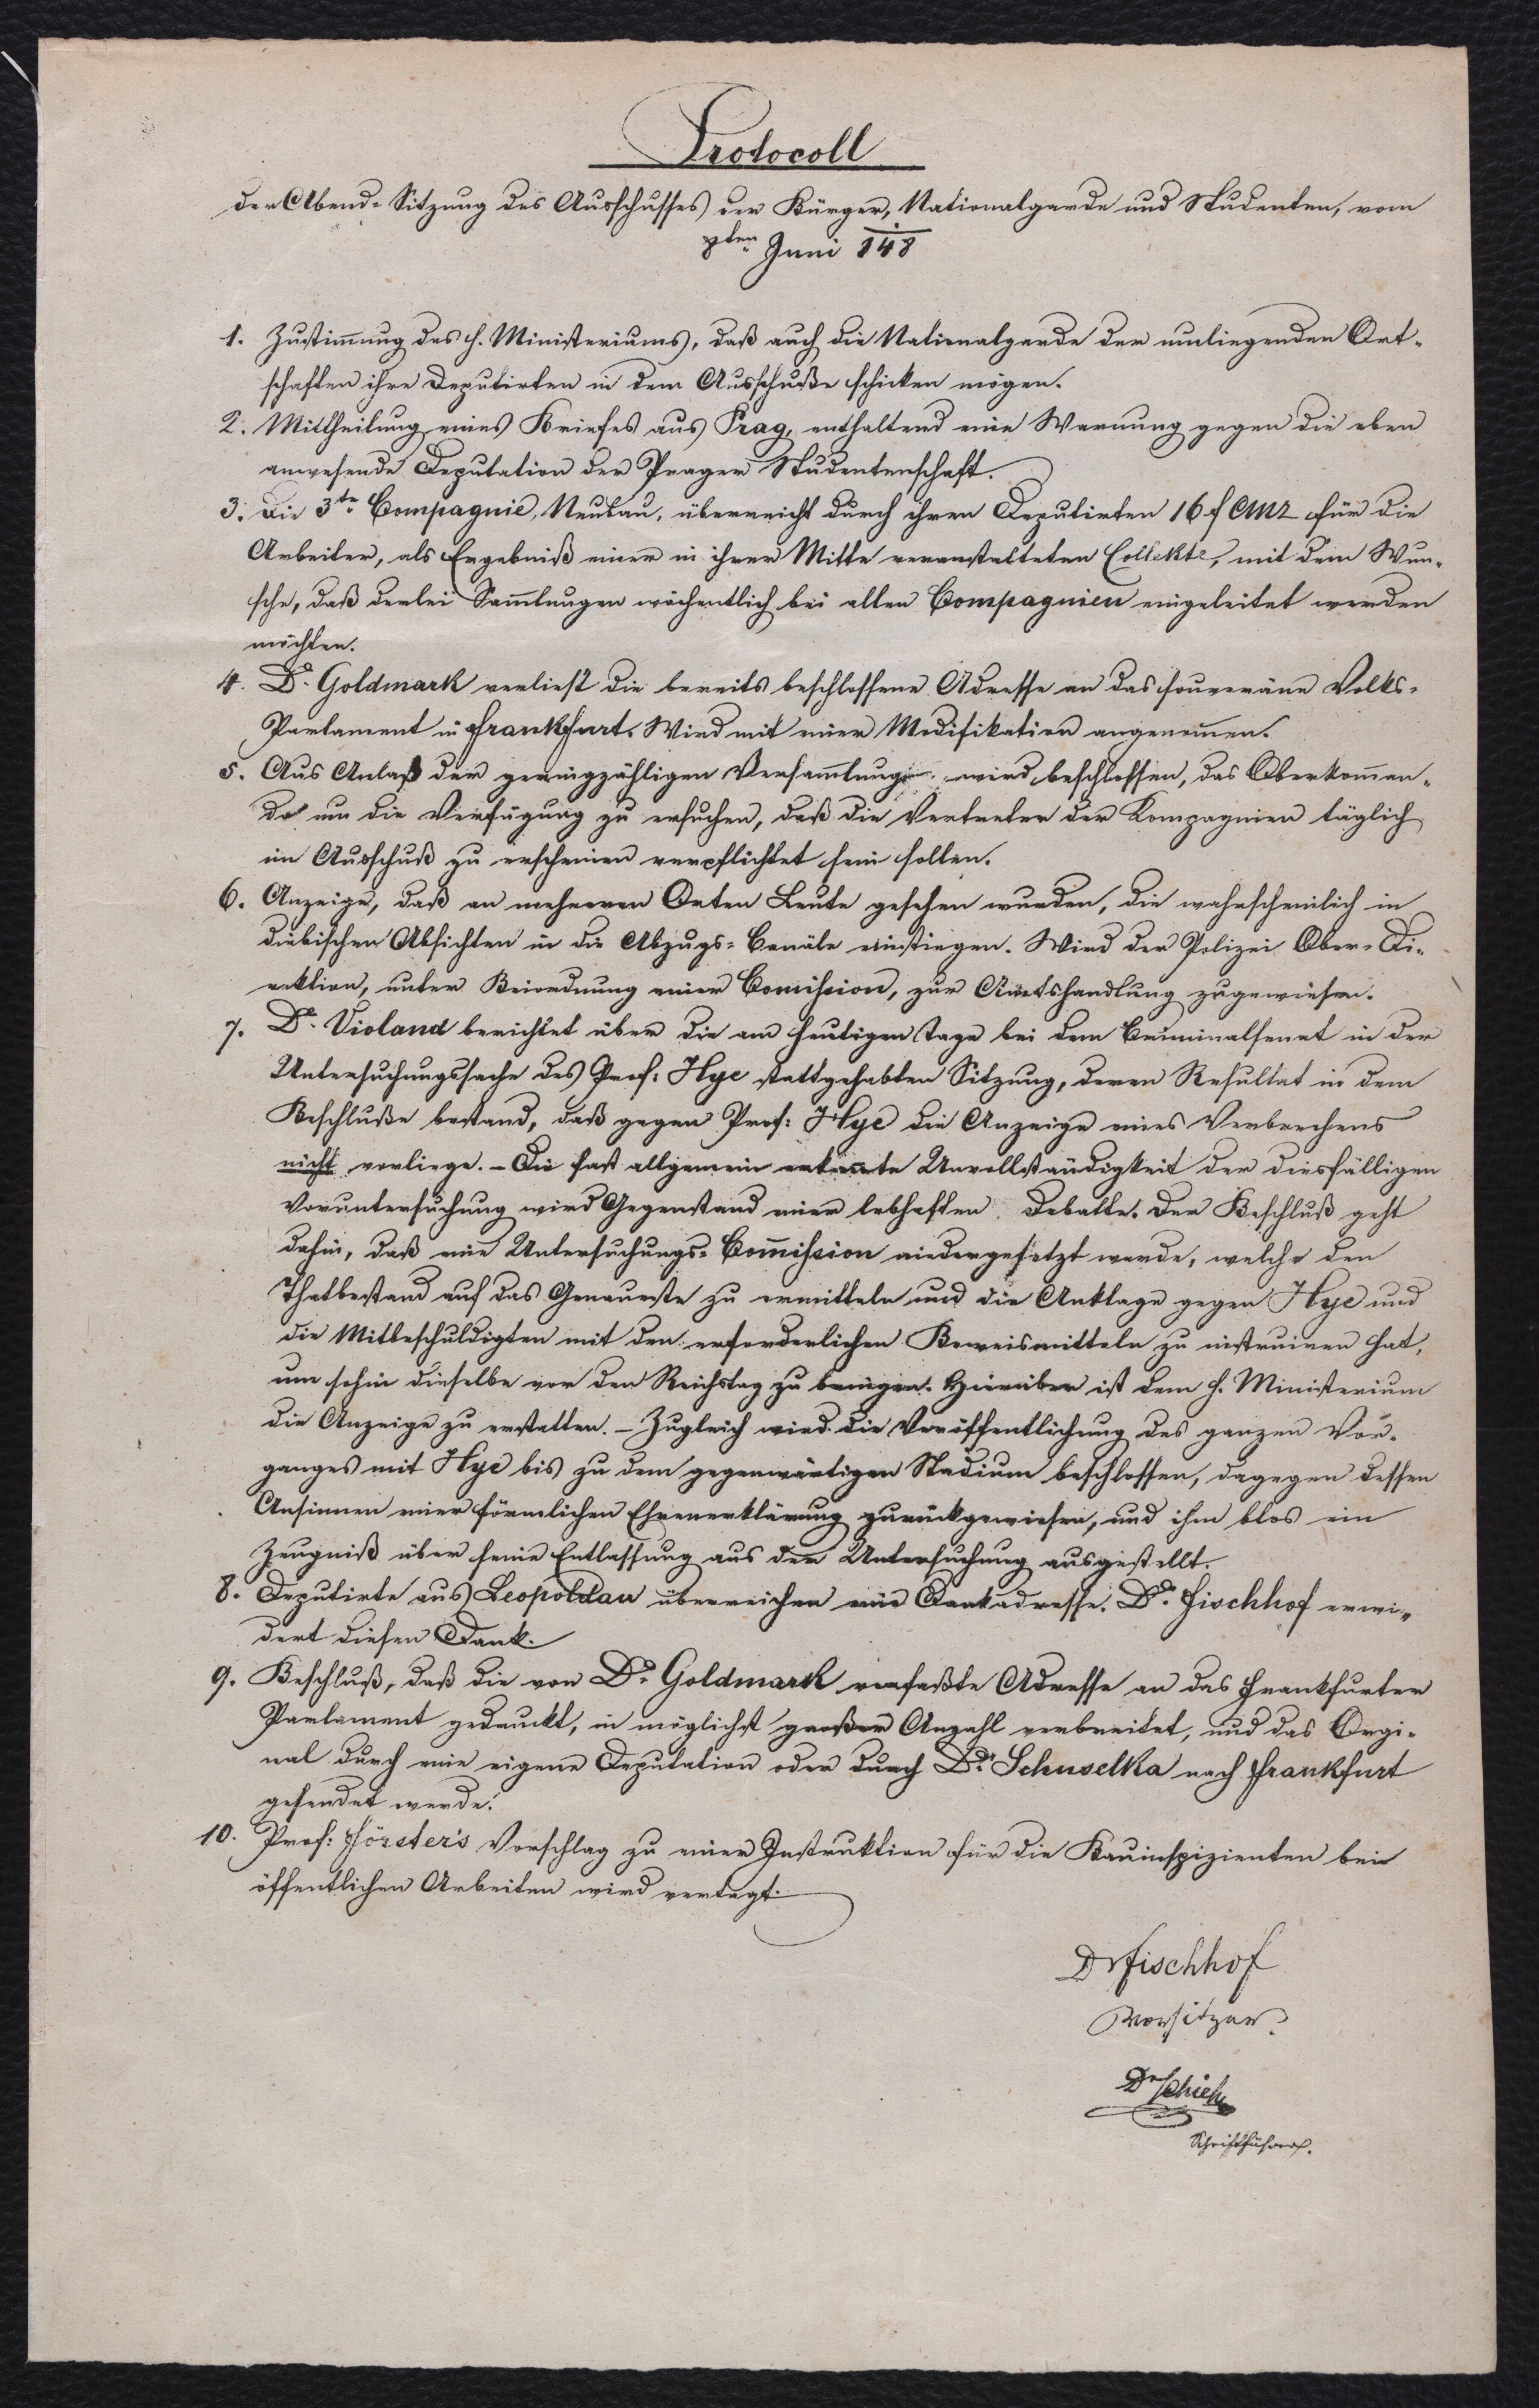 Protocoll
der Abend-Sitzung des Ausschusses der Bürger, Nationalgarde und Studenten, vom
8ten Juni 848
1. Zustim̄ung des h. Ministeriums, daß auch die Nationalgarde der umliegenden Ort-
schaften ihre Deputirten in dem Ausschuße schicken mögen.
2. Mittheilung eines Briefes aus Prag, enthaltend eine Warnung gegen die eben
anwesende Deputation der Prager Studentenschaft.
3. Die 3te Compagnie, Neubau, überreicht durch ihren Deputirten 16 f CMz für die
Arbeiter, als Ergebniß einer in ihrer Mitte veranstalteten Collekte, mit dem Wun-
sche, daß derlei Sam̄lungen wöchentlich bei allen Compagnien eingeleitet werden
möchten.
4. Dr. Goldmark verliest die bereits beschlossene Adresse an das souveräne Volks-
Parlament in Frankfurt. Wird mit einer Modifikation angenom̄en.
5. Aus Anlaß der geringzähligen Versam̄lung wird beschlossen, das Oberkom̄an-
do um die Verfügung zu ersuchen, daß die Vertreter der Kompagnien täglich
im Ausschuß zu erscheinen verpflichtet sein sollen.
6. Anzeige, daß an mehreren Orten Leute gesehen wurden, die wahrscheinlich in
diebischen Absichten in die Abzugs-Canäle einstiegen. Wird der Polizei Ober-Di-
rektion, unter Beiordnung einer Com̄ission, zur Amtshandlung zugewiesen.
7. Dr. Violand berichtet über die am heutigen Tage bei dem Criminalsenat in der
Untersuchungssache des Prof: Hye stattgehabten Sitzung, deren Resultat in dem
Beschluße bestand, daß gegen Prof: Hye die Anzeige eines Verbrechens
nicht vorliege. – Die fast allgemein erkannte Unvollständigkeit der diesfälligen
Voruntersuchung wird Gegenstand einer lebhaften Debatte. Der Beschluß geht
dahin, daß eine Untersuchungs-Com̄ission niedergesetzt werde, welche den
Thatbestand auf das Genaueste zu ermitteln und die Anklage gegen Hye und
die Mitbeschuldigten mit den erforderlichen Beweismitteln zu instruiren hat,
um sohin dieselbe vor den Reichstag zu bringen. Hierüber ist dem h. Ministerium
die Anzeige zu erstatten. – Zugleich wird die Veröffentlichung des ganzen Vor-
ganges mit Hye bis zu dem gegenwärtigen Stadium beschlossen, dagegen dessen
Ansinnen einer förmlichen Ehrenerklärung zurückgewiesen, und ihm blos ein
Zeugniß über seine Entlassung aus der Untersuchung ausgestellt.
8. Deputirte aus Leopoldau überreichen eine Dankadresse. Dr. Fischhof erwi-
dert diesen Dank.
9. Beschluß, daß die von Dr. Goldmark verfaßte Adresse an das Frankfurter
Parlament gedruckt, in möglichst großer Anzahl verbreitet, und das Origi-
nal durch eine eigene Deputation oder durch Dr. Schuselka nach Frankfurt
gesendet werde.
10. Prof: Förster's Vorschlag zu einer Instruktion für die Bauinspizienten bei
öffentlichen Arbeiten wird vertagt.
Dr Fischhof
Vorsitzer.
Dr
Schriftführer.